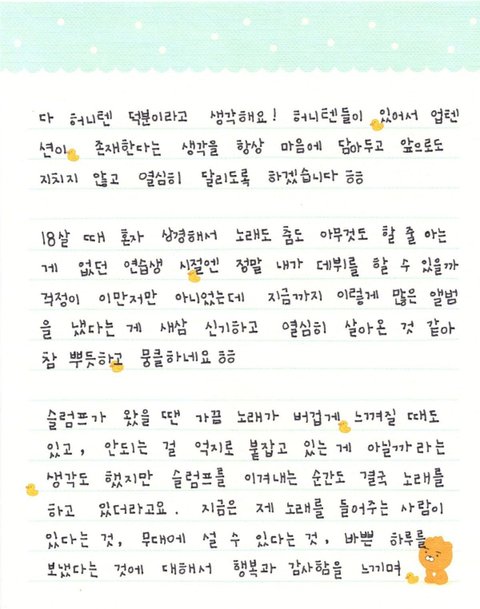 다 허니텐 덕분이라고 생각해요! 허니텐들이 있어서 업텐
션이 존재한다는 생각을 항상 마음에 담아두고 앞으로도
지치지 않고 열심히 달리도록 하겠습니다 ㅎㅎ
18살 때 혼자 상경해서 노래도 춤도 아무것도 할 줄 아는
게 없던 연습생 시절엔 정말 내가 데뷔를 할 수 있을까
걱정이 이만저만 아니었는데 지금까지 이렇게 많은 앨범
을 냈다는 게 새삼 신기하고 열심히 살아온 것 같아
참 뿌듯하고 뭉클하네요 ㅎㅎ
슬럼프가 왔을 땐 가끔 노래가 버겁게 느껴질 때도
있고, 안되는 걸 억지로 붙잡고 있는 게 아닐까라는
생각도 했지만 슬럼프를 이겨내는 순간도 결국 노래를
하고 있더라고요. 지금은 제 노래를 들어주는 사람이
있다는 것, 무대에 설 수 있다는 것, 바쁜 하루를
보냈다는 것에 대해서 행복과 감사함을 느끼며